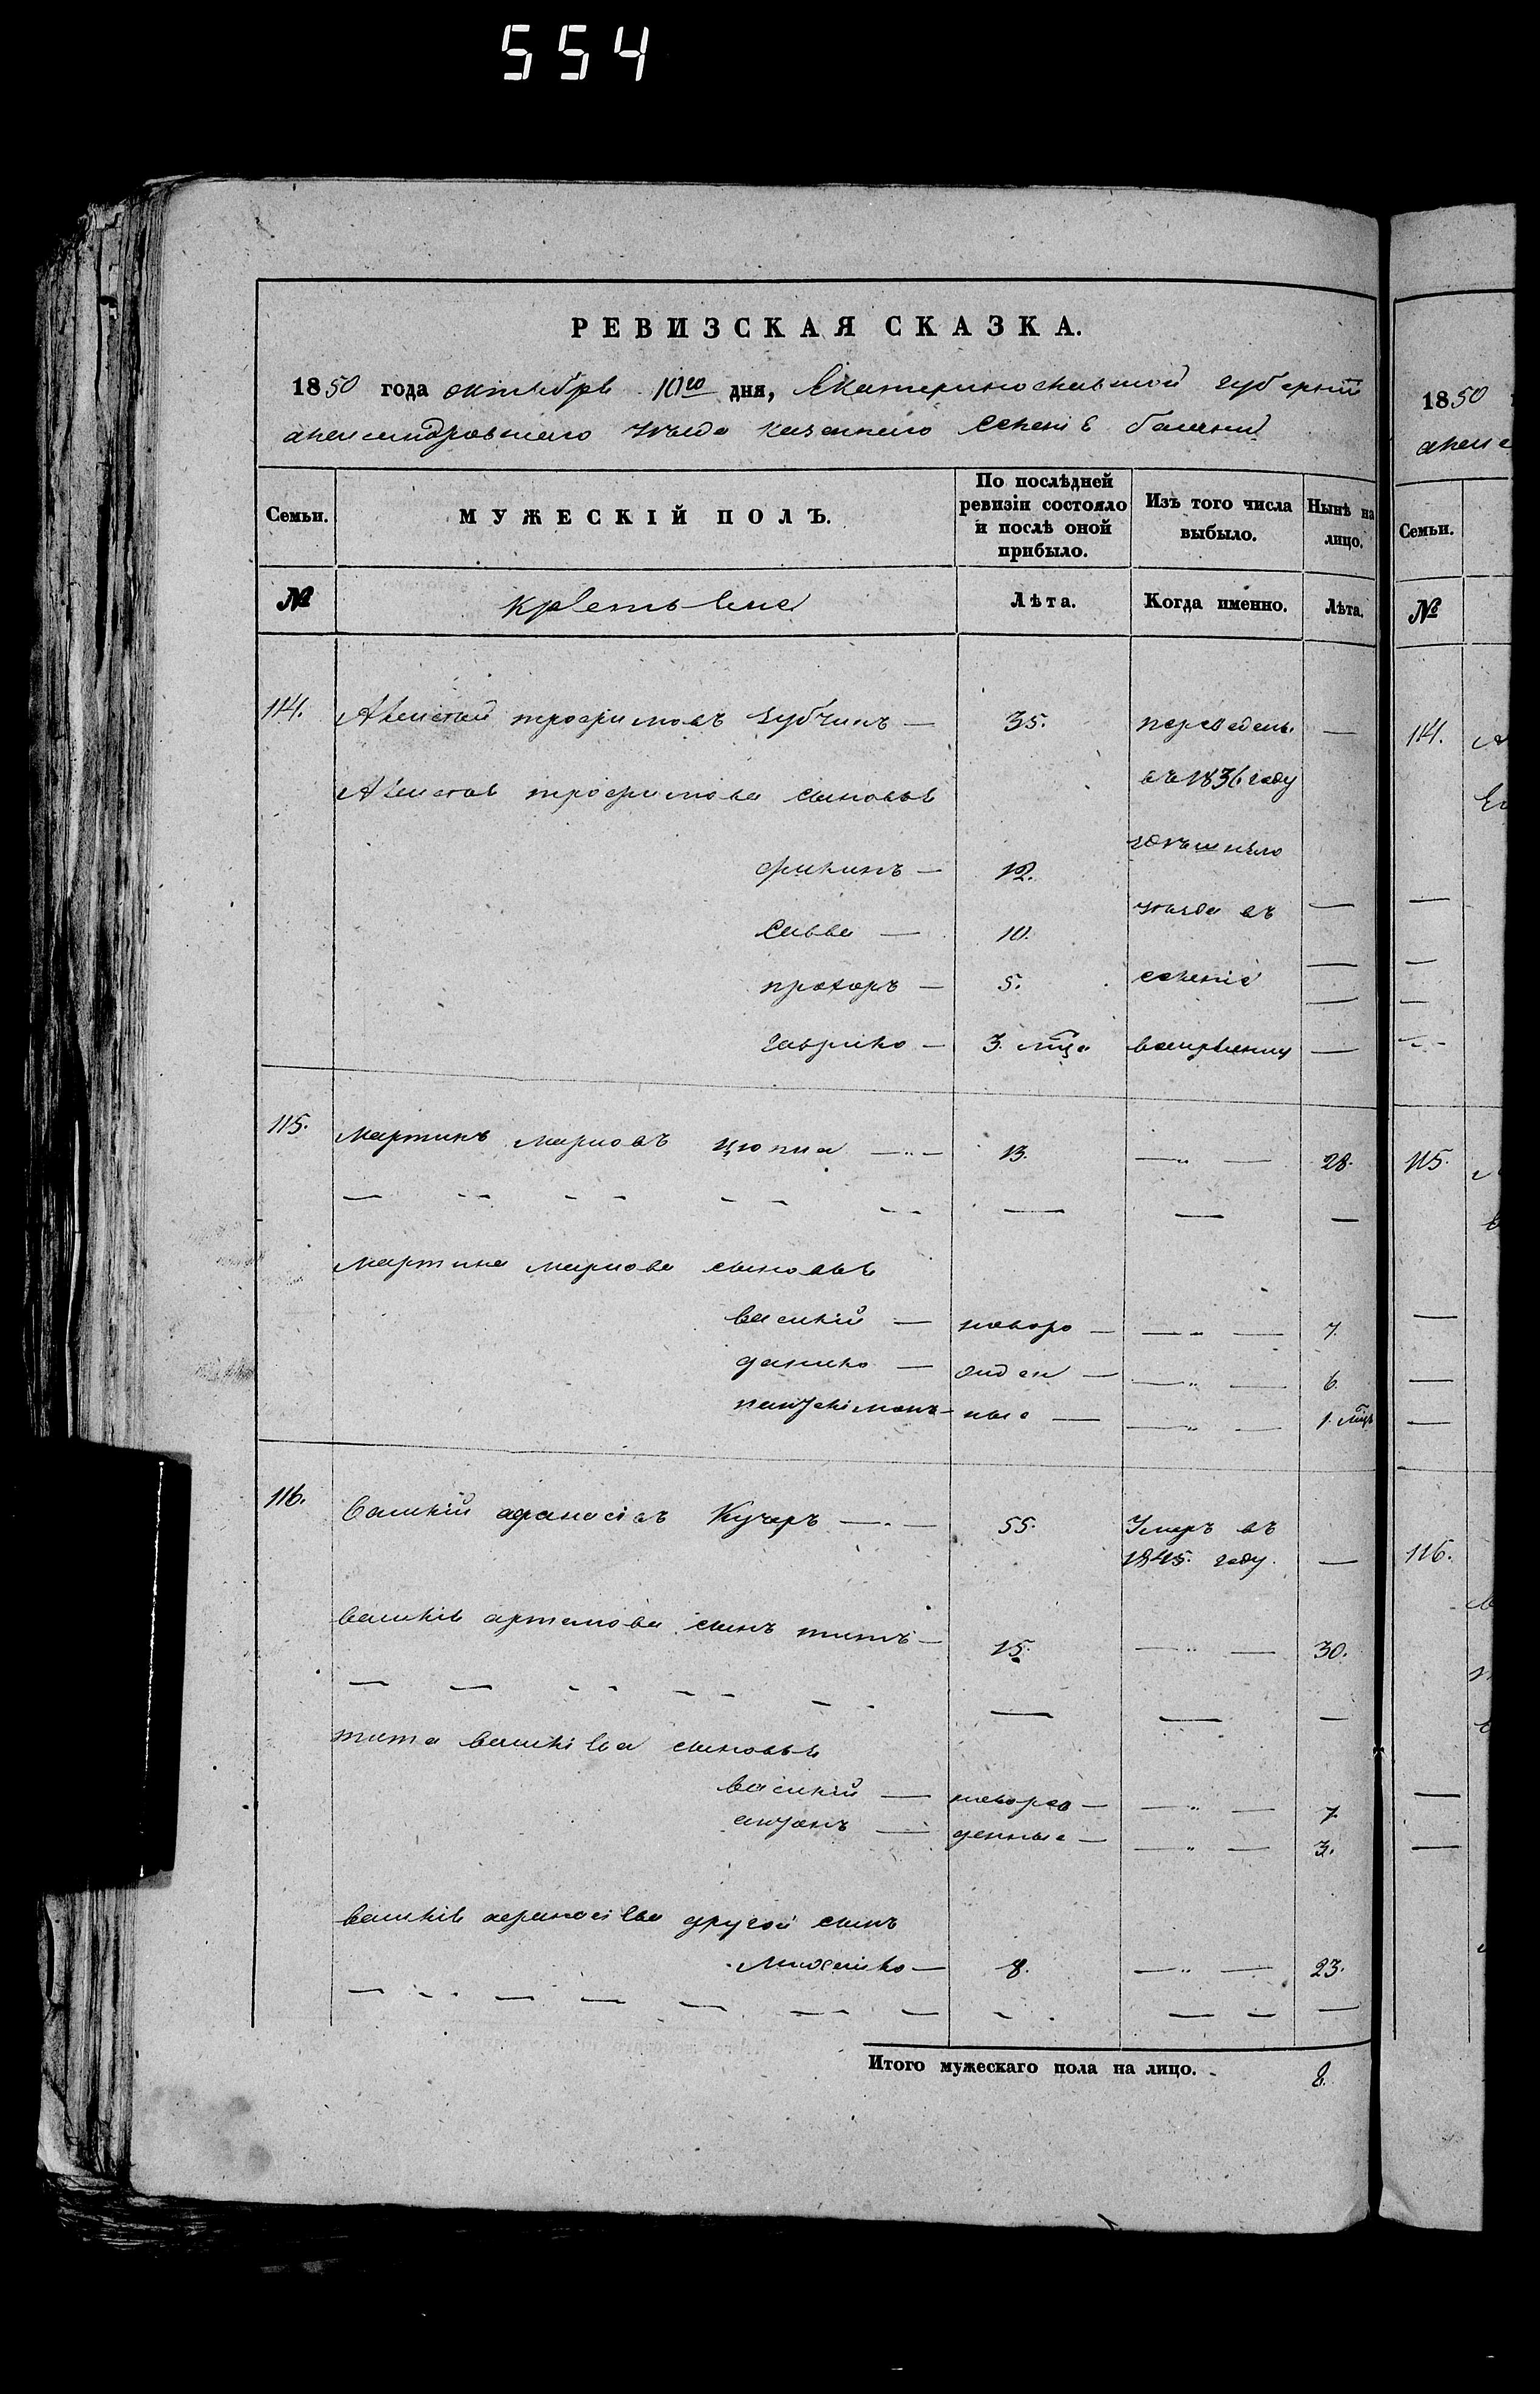 554
РЕВИЗСКАЯ СКАЗКА.
1850 года октября 10го дня, Екатеринославской губерніи
александровскаго уѣзда казеннаго селенія
Семьи.
МУЖЕСКІЙ ПОЛЪ.
По послѣдней ревизіи состояло и послѣ оной прибыло.
Изъ того числа выбыло.
Нынѣ на лицо.
№
Лѣта.
Когда именно.
Лѣта.
114. Алексѣй трофимовъ Зубчикъ — 35. переведенъ —
Алексѣя трофимова сыновья въ 1836 году
филипъ — 12. здѣшняго
савва — 10. уѣзда въ —
прохоръ — 5. селеніе —
гаврило — 3. мѣц. —
115. мартинъ марковъ цюпка — 13. — " — 28.
мартина маркова сыновья
василій — новоро — — " — 7.
данило — жден — — " — 6.
пантелімонъ — ные — — " — 1. мѣц
116. василій афанасіевъ Кучеръ — 55. Умеръ въ
1845. году. —
василія артемова сынъ титъ — 15. — " — 30.
тита василіева сыновья
василій — новорож — — " — 7.
антонъ — денные — — " — 3.
василія афанасіева другой сынъ
михайло — 8. — " — 23.
Итого мужескаго пола на лицо. 8.
1850
алекс
Семьи.
№
114.
115.
116.